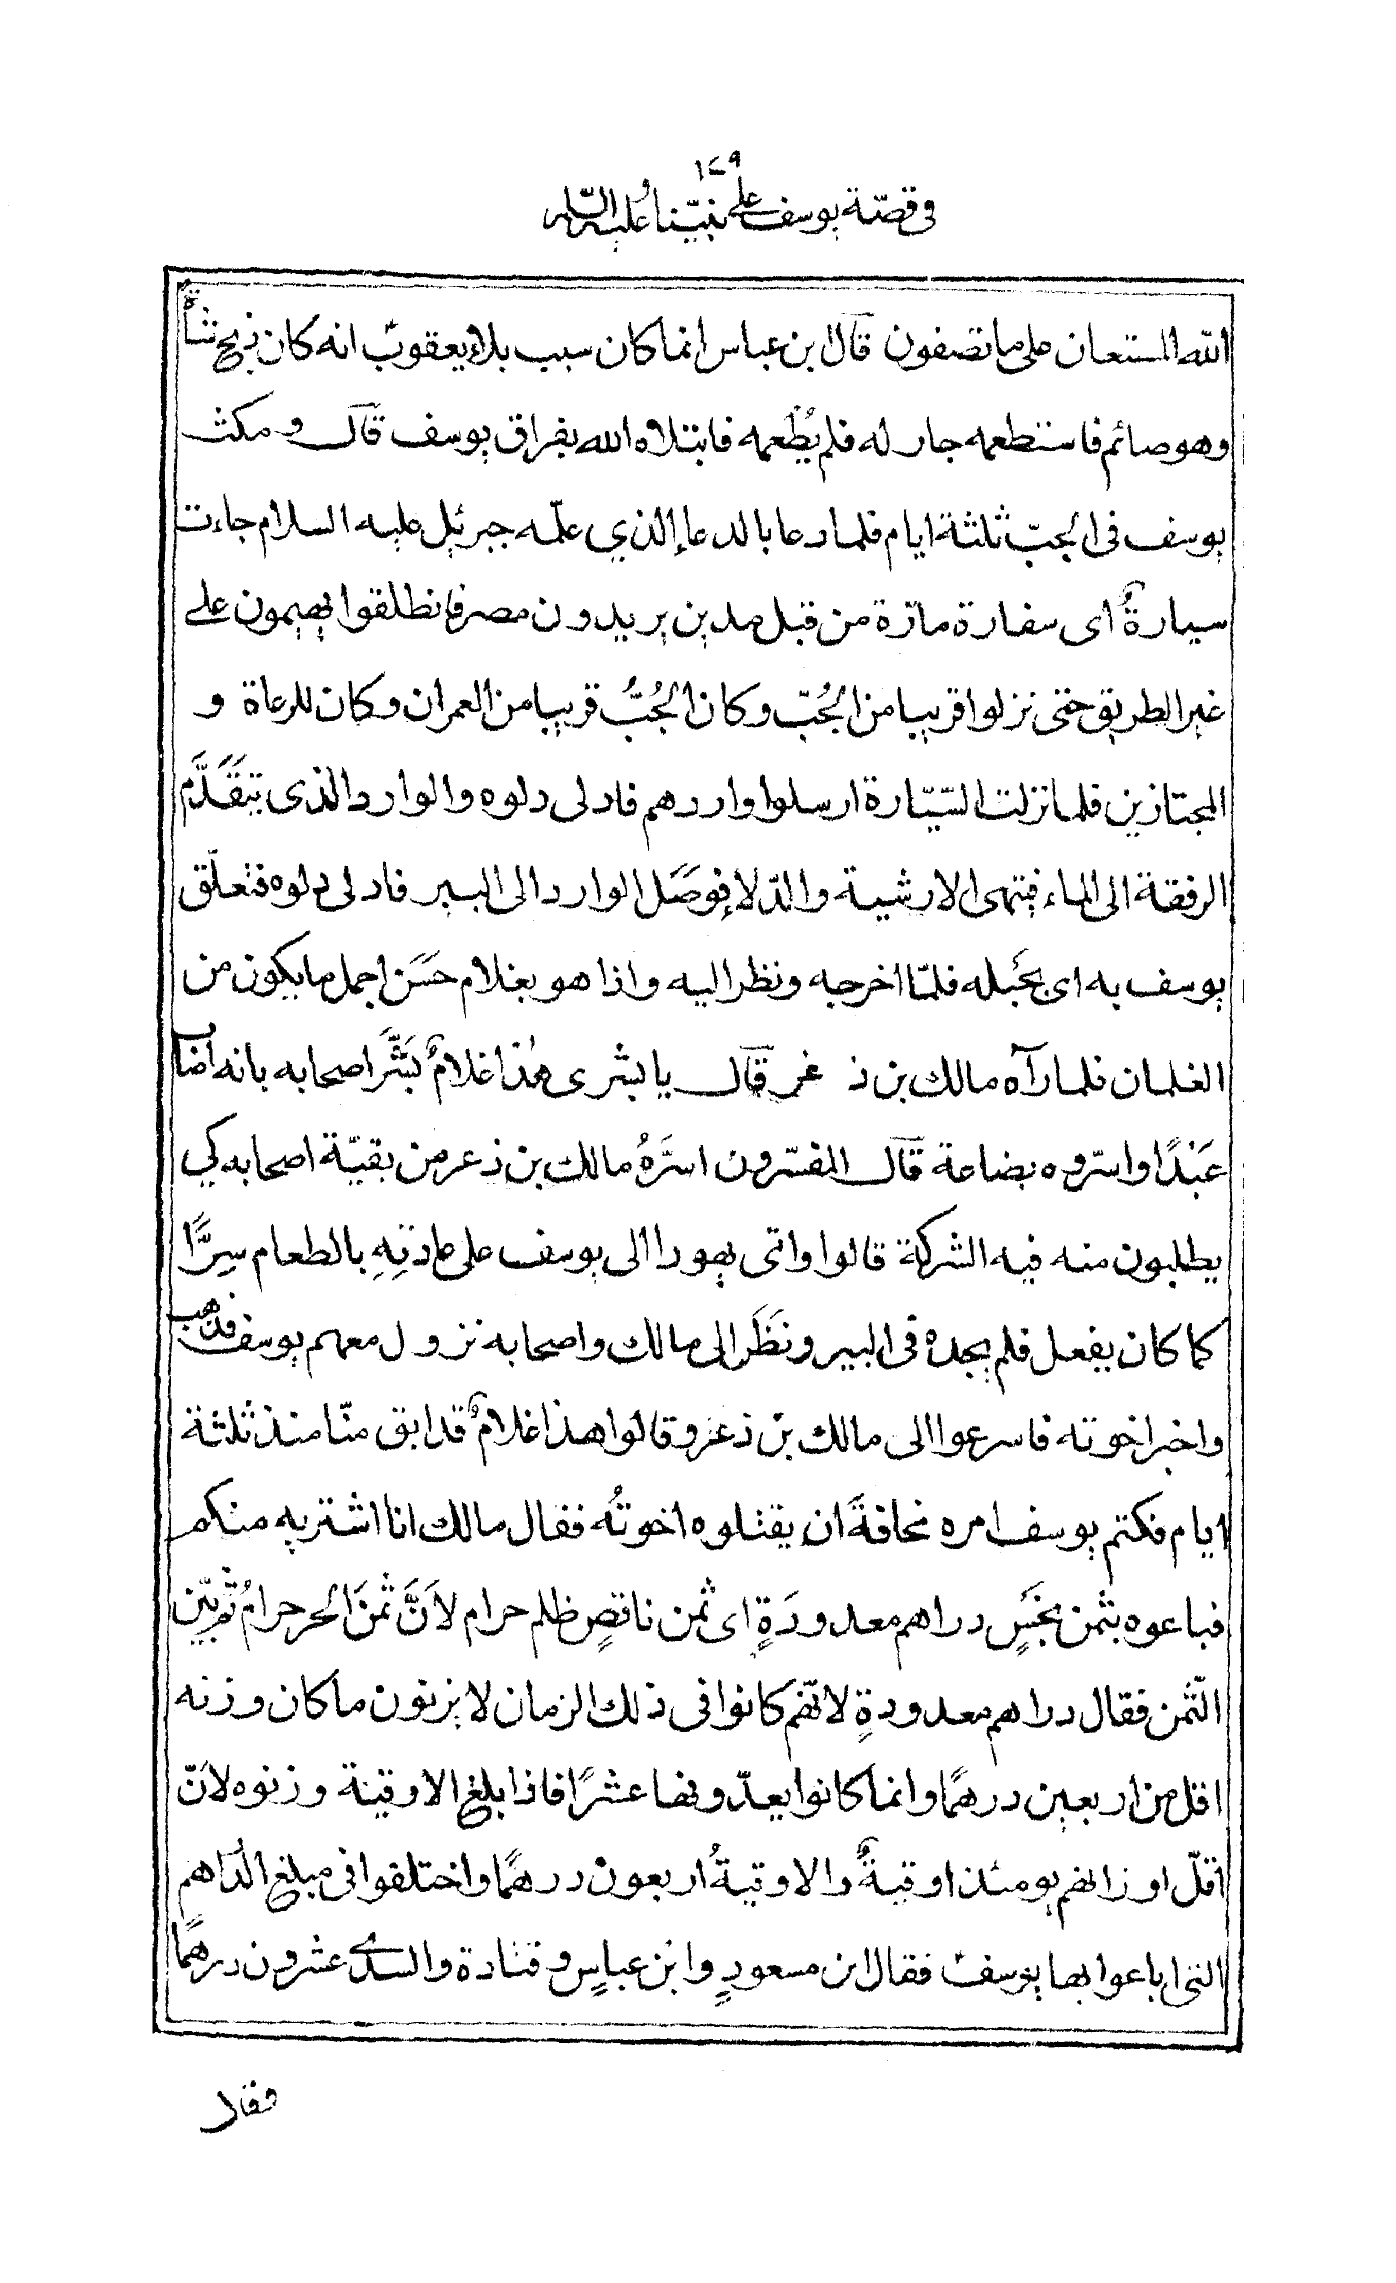 ١٤٩
في قصّة يوسف على نبيّنا وعليه السّلام
الله المستعان على ما تصفون قال بن عباس انما كان سبب بلاء يعقوبَ انه كان ذبح شاة
وهو صائم فاستطعمه جار له فلم يُطْعمه فابتلاه الله بفراق يوسف قال ومكث
يوسف في الجبّ ثلثة ايام فلما دعا بالدعاء الذي علّمه جبرئيل عليه السلام جاءت
سيارةٌ اى سفارة مارّة من قبل مدين يريدون مصر فانطلقوا يهيمون على
غير الطريق حتى نزلوا قريبا من الجُبّ وكان الجُبُّ قريبا من العمران وكان للرعاة و
المجتازين فلما نزلت السّيّارة ارسلوا واردهم فادلى دلوه والوارد الذى يَتَقَدَّم
الرفقة الى الماء فيتهى الارشية والدّلاء فوصَل الوارد الى البير فادلى دلوه فتعلّق
يوسف به اى بحَبله فلمّا اخرجه ونظر اليه واذا هو بغلام حَسَن اجمل ما يكون من
الغلمان فلما رآه مالك بن ذ عر قال يا بشرى هٰذا غلامٌ بَشَّرَ اصحابه بانه اصاب
عَبْدًا واسرّوه بضاعة قال المفسّرون اسَرَّهُ مالك بن ذعر من بقيّة اصحابه كي
يطلبون منه فيه الشركة قالوا واتى يهودا الى يوسف على عادتِهِ بالطعام سِرًّا
كما كان يفعل فلم يجده في البير ونَظَر الى مالك واصحابه نزول معهم يوسف فذهب
واخبر اخوته فاسرعوا الى مالك بن ذعر وقالوا هذا غلامٌ قد ابق منّا منذ ثلثة
ايام فكتم يوسف امره مخافةً ان يقتلوه اخوتُه فقال مالك انا اشتريه منكم
فباعوه بثمن بخسٍ دراهم معدودَةٍ اى ثمن ناقصٍ ظلم حرام لاَنَّ ثمنَ الحر حرامُ ثم بيّن
الثّمن فقال دراهم معدودةٍ لانّهم كانوا في ذلك الزمان لا يزنون ما كان وزنه
اقل من اربعين درهمًا وانما كانوا يعدّونها عشرًا فاذا بلغ الاوقية وزنوه لانّ
اقلّ اوزانهم يومئذ اوقيةٌ والاوقيةُ اربعون درهمًا واختلفوا في مبلغ الدراهم
التي باعوا بها يوسفَ فقال ابن مسعودٍ وابن عباسٍ وقتادة والسدي عشرون درهمًا
فقال